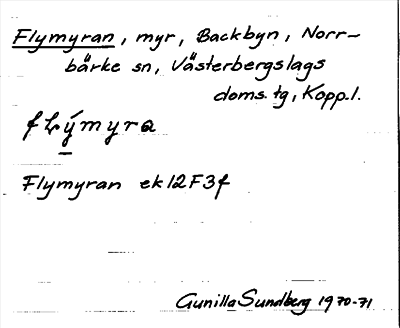 Flymyran, myr, Backbyn, Norr-
bärke sn, Västerbergslags
doms.tg, Kopp.l.
flýmyra
Flymyran ek 12F3f
Gunilla Sundberg 1970-71